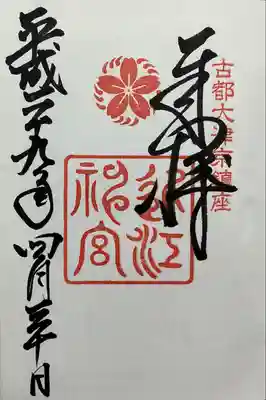 古都大津京鎮座
奉拝
近江神宮
平成二十九年四月三十日